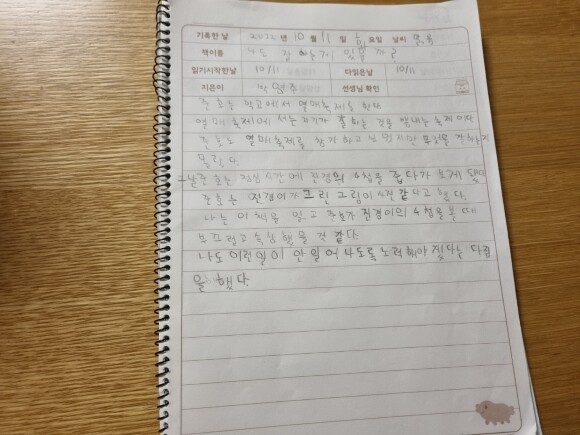 기록한 날 2022년 10월 11일 요일 날씨
책이름 나도 잘하는게 있을까?
읽기시작한날 10/11 다읽은날 10/11
지은이 박영주 선생님 확인
준호는 학교에서 열매축제를 한다
열매축제에서는 자기가 잘하는 것을 뽐내는 축제이다
준호도 열매축제를 참가하고 싶었지만 무엇을 잘하는지
모른다.
그날 준호는 점심시간에 진경의 수첩을 줍다가 보게 됐다
준호는 진경이가 그린 그림이 사진 같다고 했다.
나는 이 책을 읽고 준호가 진경이의 수첩을 볼때
부끄럽고 속상했을 것 같다.
나도 이런일이 안 일어나도록 노력해야 겠다는 다짐
을 했다.